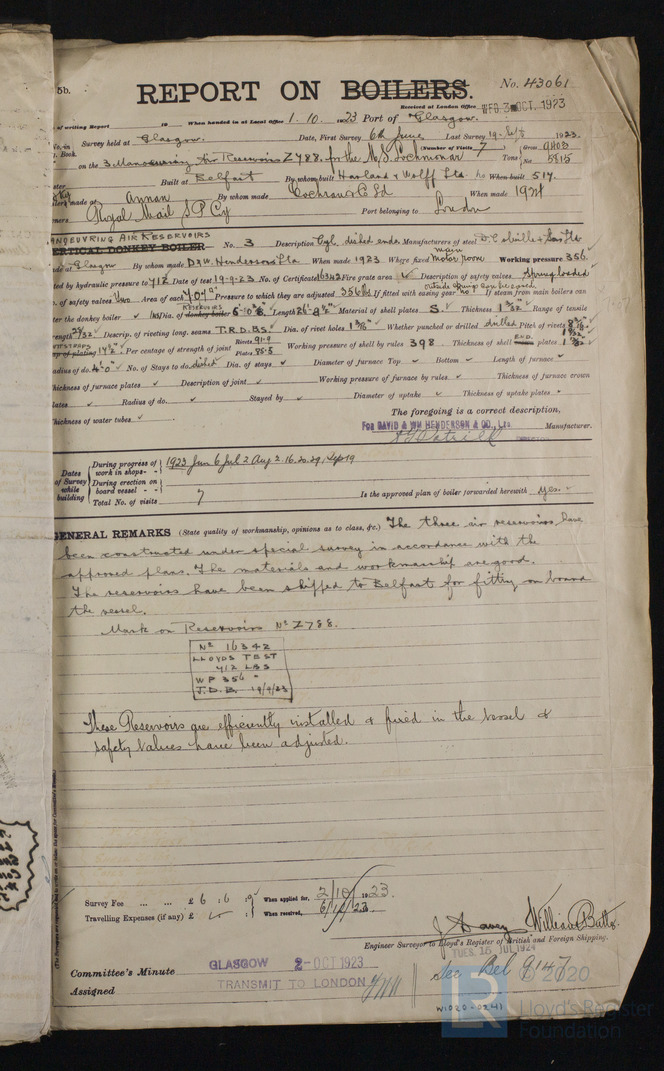 5b.
REPORT ON BOILERS.
No. 43061
Received at London Office WED 3 OCT. 1923
of writing Report 19 When handed in at Local Office 1. 10. 1923 Port of Glasgow.
No. in Survey held at Glasgow. Date, First Survey 6th June Last Survey 19. 1923.
Book. (Number of Visits 7)
on the 3 Manoeuvring Air Reservoirs Z788. for the M/S. Lochmonar Gross Tons Net 5815
Built at Belfast By whom built Harland & Wolff Ltd. When built
made at Annan By whom made Cochran & Co Ld When made 1924
Owners Royal Mail S P Cy Port belonging to London
MANOEUVRING AIR RESERVOIRS
VERTICAL DONKEY BOILER No. 3 Description Cyl. dished ends Manufacturers of steel D. Colville & Sons Ltd
Made at Glasgow By whom made D & W. Henderson Ltd When made 1923 Where fixed main motor room Working pressure 356
tested by hydraulic pressure to 712 Date of test 19-9-23 No. of Certificate 16342 Fire grate area Description of safety valves Spring loaded
No. of safety valves Two Area of each 7.07" Pressure to which they are adjusted 356 lbs If fitted with easing gear no If steam from main boilers can
enter the donkey boiler no Dia. of donkey boiler RESERVOIRS Length Material of shell plates S. Thickness 1 Range of tensile
strength Descrip. of riveting long. seams T.R.D.B.S. Dia. of rivet holes Whether punched or drilled drilled Pitch of rivets
Lap of plating Per centage of strength of joint Rivets 91.9 Plates 85.5 Working pressure of shell by rules 398 Thickness of shell END plates
Radius of do. 4'0" No. of Stays to do. dished Dia. of stays Diameter of furnace Top Bottom Length of furnace
Thickness of furnace plates Description of joint Working pressure of furnace by rules Thickness of furnace crown
plates Radius of do. Stayed by Diameter of uptake Thickness of uptake plates
Thickness of water tubes
The foregoing is a correct description,
FOR DAVID & WM HENDERSON & CO., LTD. Manufacturer.
DIRECTOR
Dates of Survey while building
During progress of work in shops - - 1923 Jun 6 Jul 2 Aug 2. 16. 20. 29. Sep 19
During erection on board vessel - -
Total No. of visits 7
Is the approved plan of boiler forwarded herewith yes.
GENERAL REMARKS (State quality of workmanship, opinions as to class, &c.) The three air reservoirs have
been constructed under special survey in accordance with the
approved plans. The materials and workmanship are good.
The reservoirs have been shipped to Belfast for fitting on board
the vessel.
Mark on Reservoirs No Z788.
No 16342
LLOYDS TEST
712 LBS
WP 356 "
J.D.B. 19/9/23
These Reservoirs are efficiently installed & fixed in the vessel &
safety valves have been adjusted.
Survey Fee ... ... £ 6 : 6 : 0 When applied for, 2/10/1923.
Travelling Expenses (if any) £ When received, 6/10/23.
William Butts.
Engineer Surveyor to Lloyd's Register of British and Foreign Shipping.
TUES. 15 JUL 1924
Committee's Minute GLASGOW 2-OCT 1923
Assigned TRANSMIT TO LONDON
see Bel 9147
© 2020
LR
Lloyd's Register
Foundation
W1020-0241